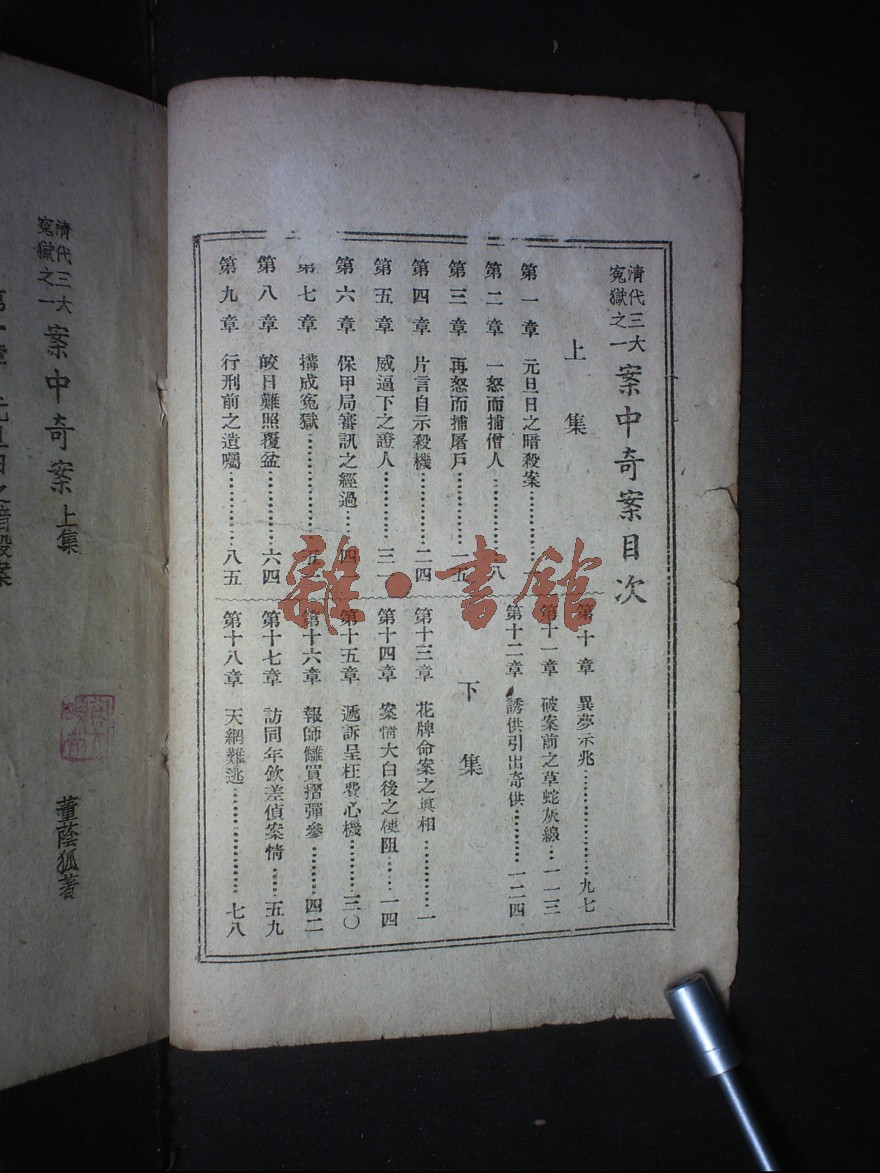 清代三大
冤獄之一
案中奇案目次
上集
第一章 元旦日之暗殺案
第二章 一怒而捕僧人…………八
第三章 再怒而捕屠戶…………一五
第四章 片言自示殺機…………二四
第五章 威逼下之證人…………三一
第六章 保甲局審訊之經過……四
第七章 構成冤獄…………五
第八章 皎日難照覆盆…………六四
第九章 行刑前之遺囑…………八五
第十章 異夢示兆…………九七
第十一章 破案前之草蛇灰線…一一三
第十二章 誘供引出奇供………一二四
下集
第十三章 花牌命案之眞相…………一
第十四章 案情大白後之梗阻……一四
第十五章 遞訴呈枉費心機………三〇
第十六章 報師讎買摺彈參………四二
第十七章 訪同年欽差偵案情…五九
第十八章 天網難逃…………七八
清代三大
冤獄之一
案中奇案 上集
董蔭狐著
第一章 元旦日之暗殺案
雜·書館